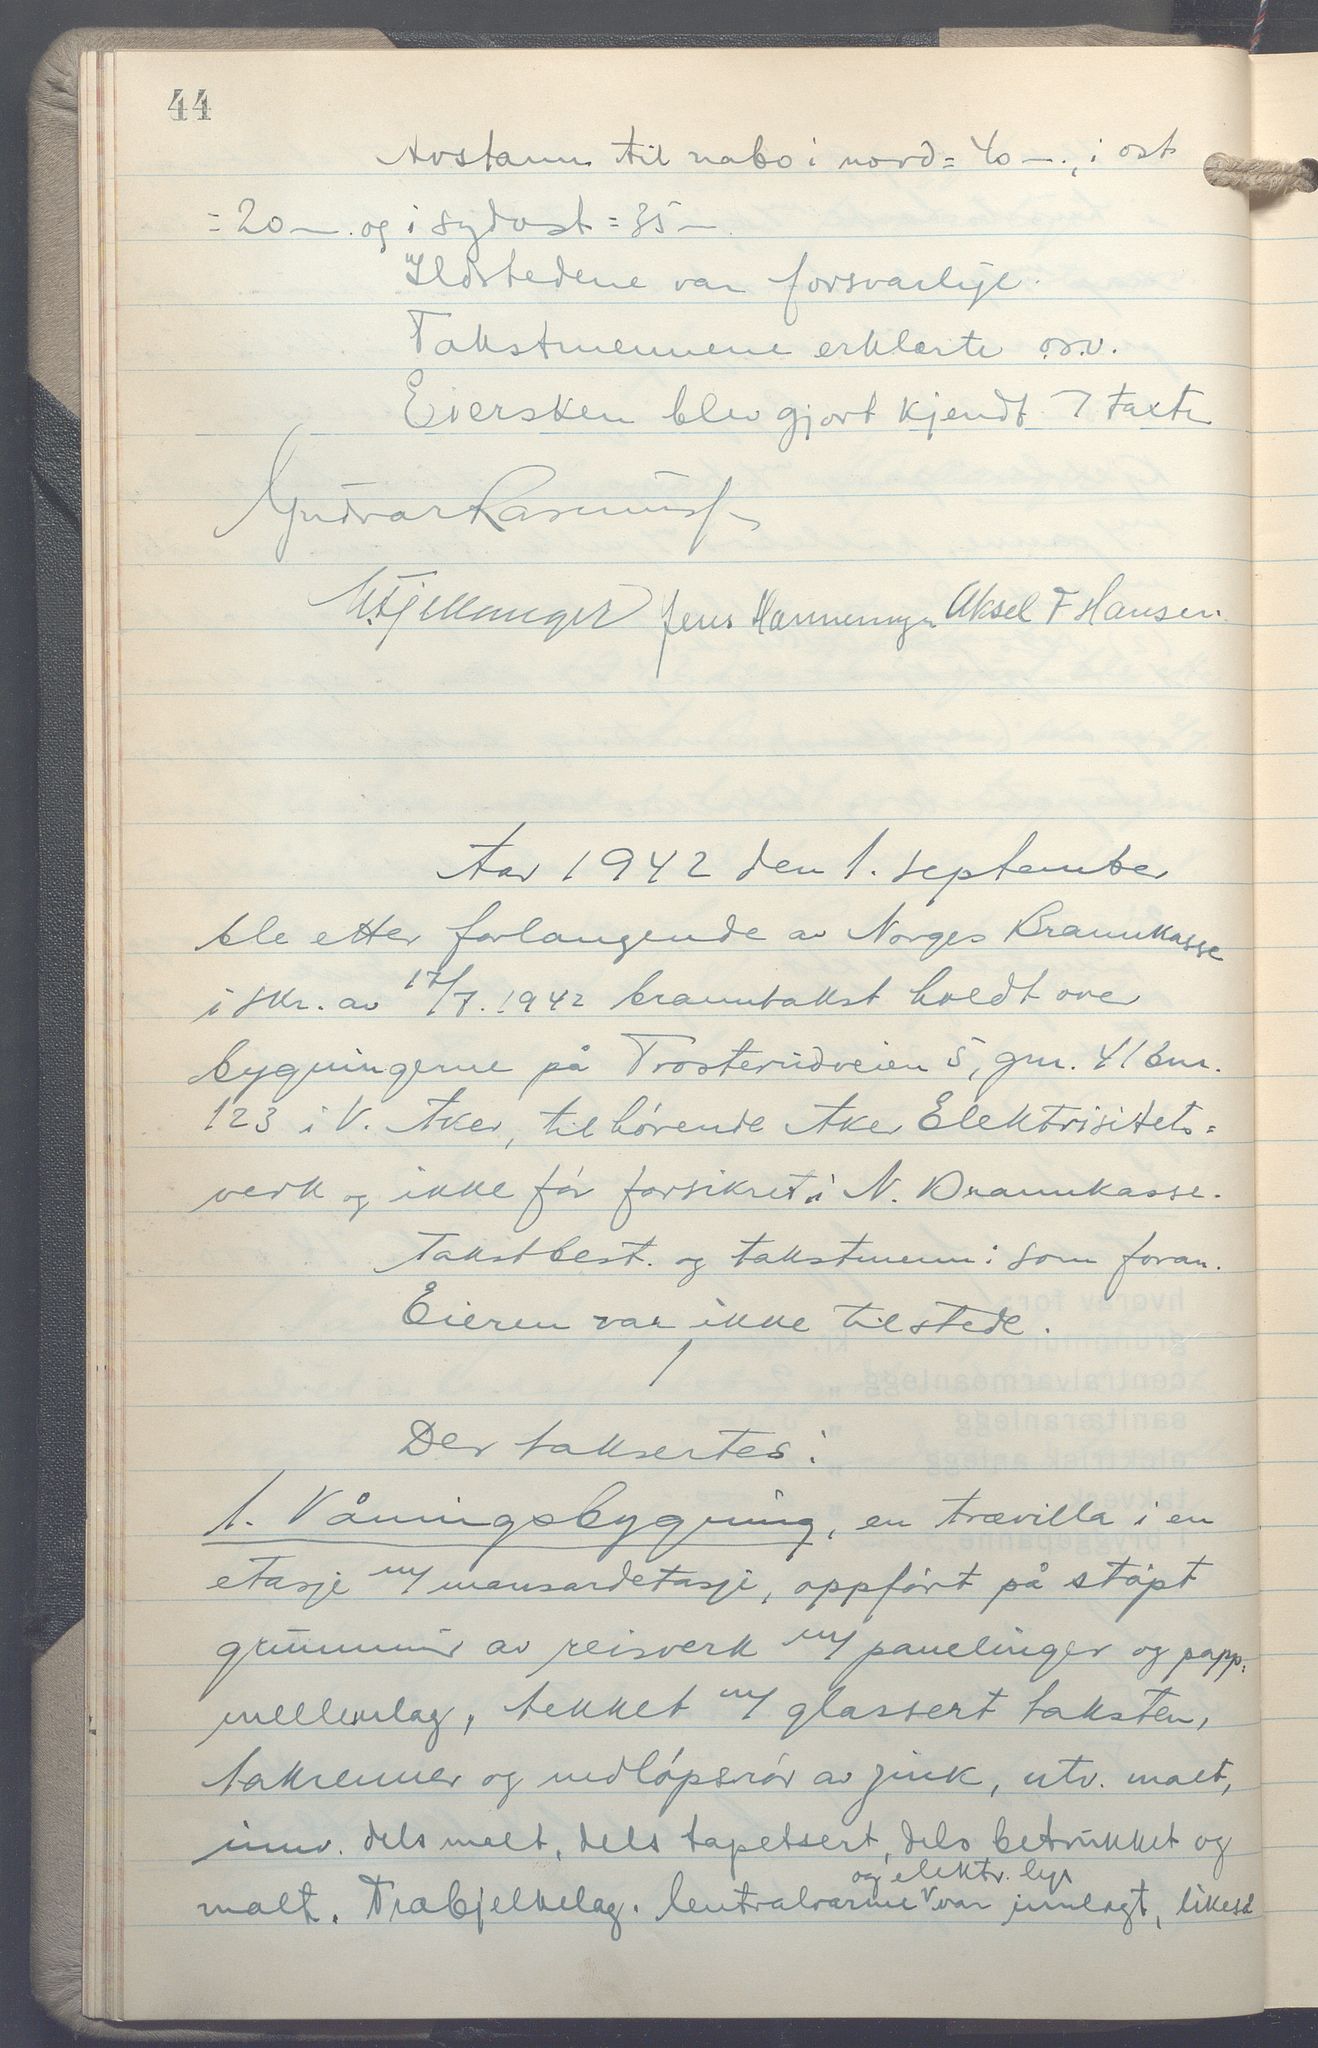 44
Avstann til nabo i nord = 40 m., i øst
= 20 m. og i sydvest = 35 m.
Ildstedene var forsvarlige.
Takstmennene erklærte o.s.v.
Eiersken blev gjort kjendt m/ taxten
Gudvar Rasmussen
Jens Hammeren Aksel F Hansen.
Aar 1942 den 1. september
ble etter forlangende av Norges Brannkasse
i skr. av 17/7. 1942 branntakst holdt over
bygningerne på Trosterudveien 5, gnr. 41 bnr.
123 i V. Aker, tilhørende Aker Elektrisitets=
verk og ikke før forsikret i N. Brannkasse.
Takstbest. og takstmenn: som foran.
Eieren var ikke tilstede.
Der taksertes:
1. Våningsbygning, en trævilla i en
etasje m/ mansardetasje, oppført på støpt
grunnmur av reisverk m/ panelinger og papp=
mellemlag, tekket m/ glassert taksten,
takrenner og nedløpsrør av zink, utv. malt,
innv. dels malt, dels tapetsert, dels betrukket og
malt. Træbjelkelag. Centralvarme og elektr. lys var innlagt, likeså